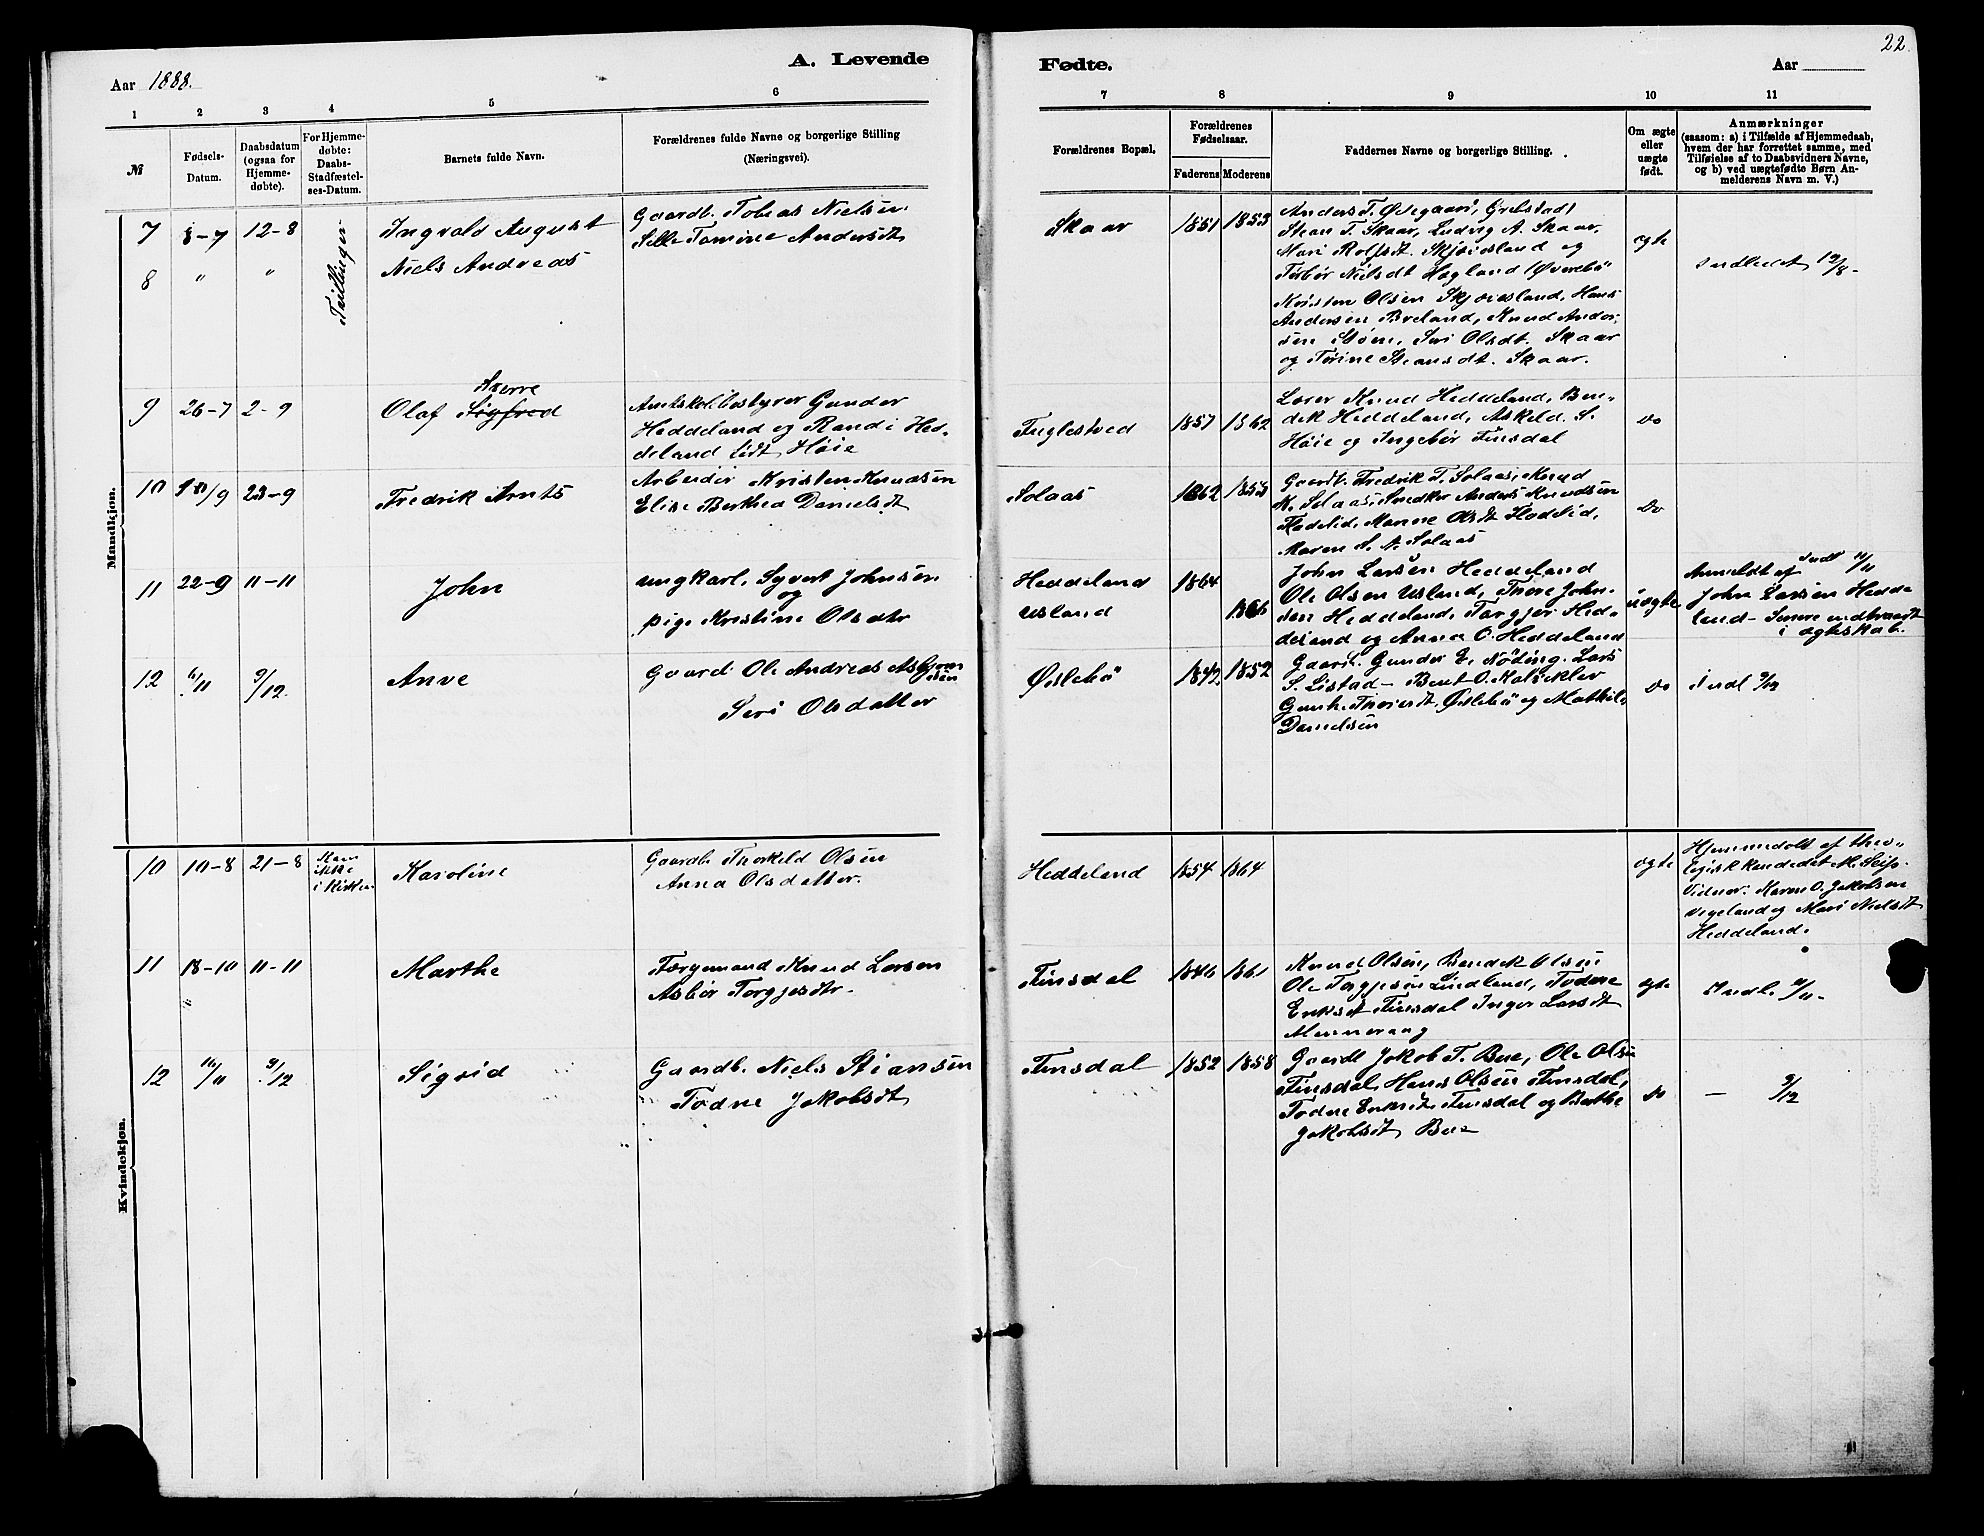 22.
A. Levende Fødte.
Aar 1888. Aar
1 2 3 4 5 6 7 8 9 10 11
№
Fødsels-
Datum.
Daabsdatum
(ogsaa for
Hjemme-
døbte).
For Hjemme-
døbte:
Daabs-
Stadfæstel-
ses-Datum.
Barnets fulde Navn.
Forældrenes fulde Navne og borgerlige Stilling
(Næringsvei).
Forældrenes Bopæl.
Forældrenes
Fødselsaar.
Faderens Moderens
Faddernes Navne og borgerlige Stilling.
Om ægte
eller
uægte
født.
Anmærkninger
(saasom: a) i Tilfælde af Hjemmedaab,
hvem der har forrettet samme, med
Tilføielse af to Daabsvidners Navne,
og b) ved uægtefødte Børn An-
melderens Navn m. V.)
Mandkjøn.
7 8-7 12-8 Tvillinger Ingvald August
8 " " Niels Andreas
Gaardb. Tobias Nielsen
Sille Tomine Andersdt
Skaar 1851 1853
Anders T. Ødegaard, Grebstad,
Stean T. Skaar, Ludvig A. Skaar,
Mari Rolfsdt. Skjævesland og
Torbør Nielsdt Hagland, Øvrebö
Kristen Olsen Skjævesland, Hans
Andersen Breland, Knud Ander-
sen Støne, Siri Olsdt. Skaar
og Torine Steansdt. Skaar.
ægte
Indledet 12/8-
9 26-7 2-9 Olaf Sigfred Sverre
Amtskolebestyrer Gunder
Heddeland og Randi Hed-
deland født Høie
Fuglestved 1857 1862
Lærer Knud Heddeland, Ben-
dik Heddeland, Askeld S.
Høie og Ingebør Finsdal
do
10 10/9 23-9 Fredrik Arnts
Arbeider Kristen Knudsen
Elise Berthea Danielsdt
Solaas 1862 1853
Gaardb. Fredrik T. Solaas, Knud
K. Solaas, Snedker Anders Knudsen
Flodelid, Manne Olsdt Flodelid,
Maren S. A. Solaas
do
11 22-9 11-11 John
ungkarl. Syvert Johnsen
og
pige Kristine Olsdtr
Heddeland 1864
Usland 1866
John Larsen Heddeland
Ole Olsen Usland, Thore John-
sen Heddeland, Torgjer Hed-
deland og Anna O. Heddeland
uægte
Indl 11/11
Anmeldt af
John Larsen Hedde-
land - Senere indtraadt
i ægteskab.
12 6/11 9/12. Anve
Gaardb. Ole Andreas Asbjørn-
sen
Siri Olsdatter
Øslebö 1842 1852
Gaardb. Gunder E. Nöding. Lars
S. Listad - Bent O. Kalöcklev
Gunh. Thorsdt. Øslebö og Mathilde
Danielsen
do
Indl 9/12
Kvindekjøn.
10 10-8 21-8 Kom
ikke
i Kirken Karoline
Gaardb. Thorkeld Olsen
Anna Olsdatter.
Heddeland 1854 1864
ægte
Hjemmedøbt af theo-
logisk kandidat M. Seip.
Vidner: Karen O. Jakobsen
Vigeland og Mari Nielsdt
Heddeland.
11 18-10 11-11 Marthe
Færgemand Knud Larsen
Asbör Torgjesdtr.
Finsdal 1846 1861
Knud Olsen, Bendik Olsen
Ole Torgjesen Lindland, Todne
Eriksdt Finsdal Inger Larsdt
Monneraag
ægte
Indl. 11/11-
12 16/11 9/12 Sigvid
Gaardb. Niels Stiansen
Todne Jakobsdt
Finsdal 1852 1858
Gaardb Jakob T. Bue, Ole Olsen
Finsdal, Hans Olsen Finsdal,
Todne Eriksdt, Finsdal og Berthe
Jakobsdt, Bue
do
— 9/12